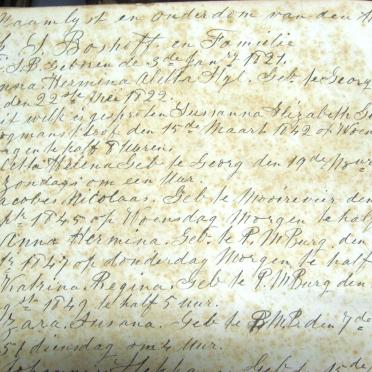 Naam lyst en onderdom van den H
J. S Boshoff en Familie
J.S.B. Geboren de 3de Jany 1821.
Anna Hermina Aletta Nyl. Geb. te Georg
den 22ste Mei 1822.
uit welk is gesproten Susanna Elizabeth Ge
ogmanskrof den 15de Maart 1842 op Woen
gen te half 8 uren.
Aletta Helena Geb te Georg den 19de
Zondags om een Uur.
Jacobus Nicolaas. Geb te Mooirevier den
1845 op Woensdag Morgen te half
Anna Hermina. Geb. te P. M Burg. den
1847 op donderdag Morgen te half
Katrina. Regina. Geb te P. M Burg den
1849 te half 5 uur.
Sara. Susana. Geb te P. M B. den 7de
51 dinsdag om 4 Uur.
Johannes Geb te